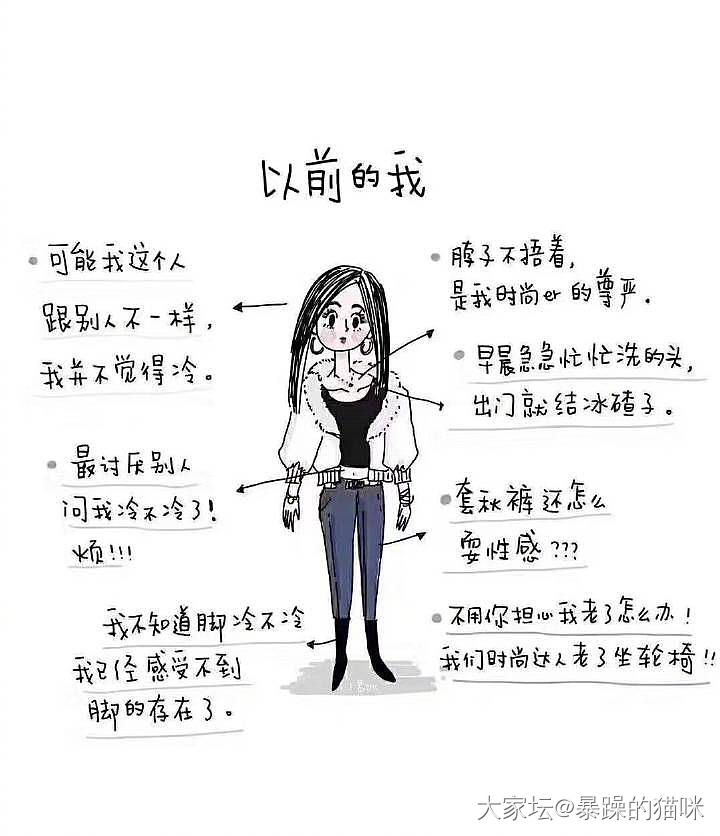 以前的我
可能我这个人
跟别人不一样，
我并不觉得冷。
脖子不捂着，
是我时尚er的尊严.
早晨急急忙忙洗的头，
出门就结冰碴子。
最讨厌别人
问我冷不冷了!
烦!!!
套秋裤还怎么
耍性感???
我不知道脚冷不冷
我已经感受不到
脚的存在了。
不用你担心我老了怎么办!
我们时尚达人老了坐轮椅!!
大家坛@暴躁的猫咪